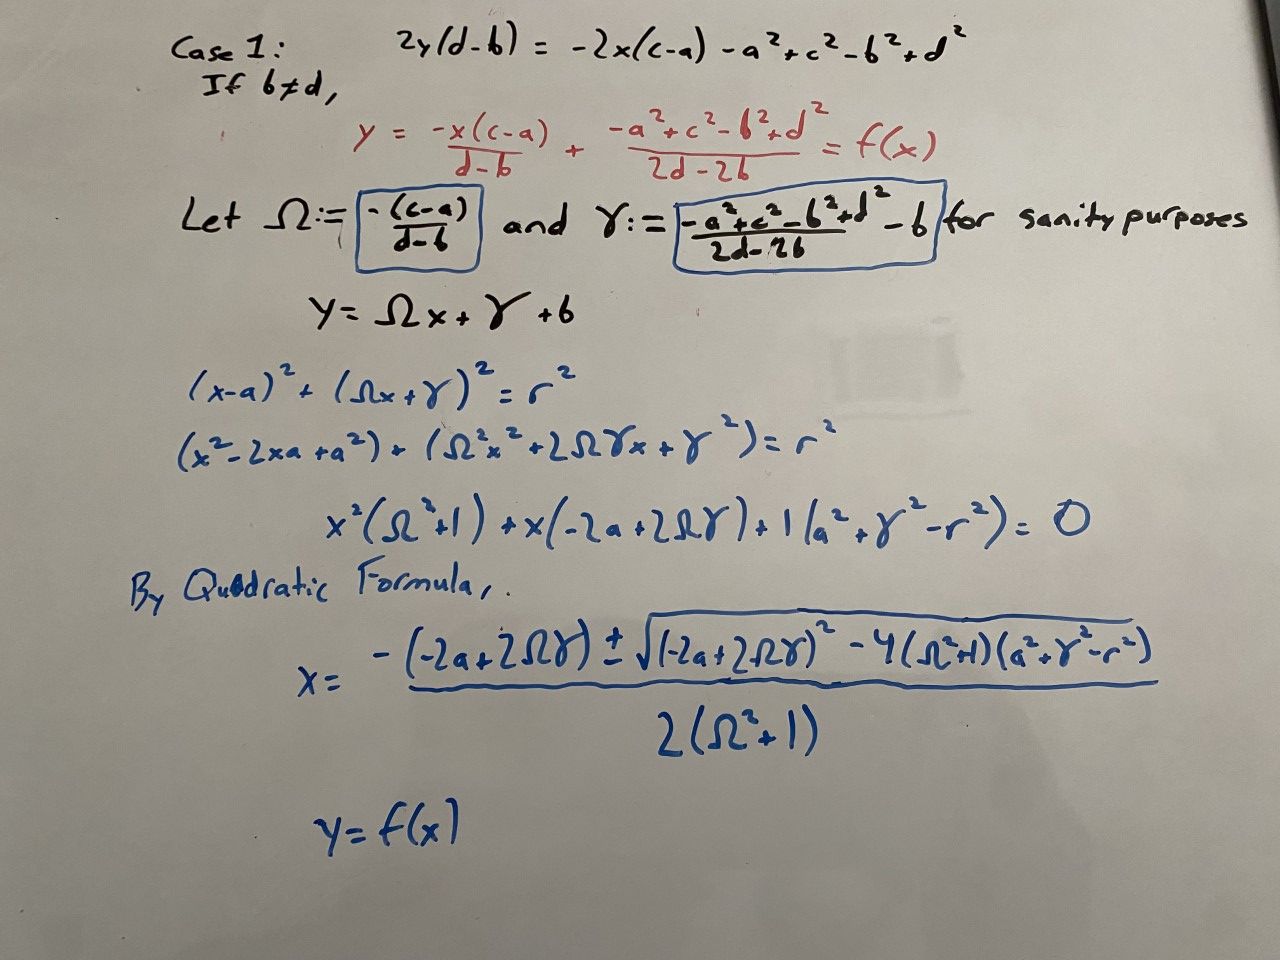 Case 1: 2y(d-b) = -2x(c-a) - a² + c² - b² + d²
If b≠d,
y = -x(c-a)/(d-b) + (-a² + c² - b² + d²)/(2d-2b) = f(x)
Let Ω := -(c-a)/(d-b) and γ := (-a² + c² - b² + d²)/(2d-2b) - b for sanity purposes
y = Ωx + γ + b
(x-a)² + (Ωx + γ)² = r²
(x² - 2xa + a²) + (Ω²x² + 2Ωγx + γ²) = r²
x²(Ω²+1) + x(-2a + 2Ωγ) + 1(a² + γ² - r²) = 0
By Quadratic Formula,
x = (-(-2a + 2Ωγ) ± √((-2a + 2Ωγ)² - 4(Ω²+1)(a² + γ² - r²)))/(2(Ω²+1))
y = f(x)